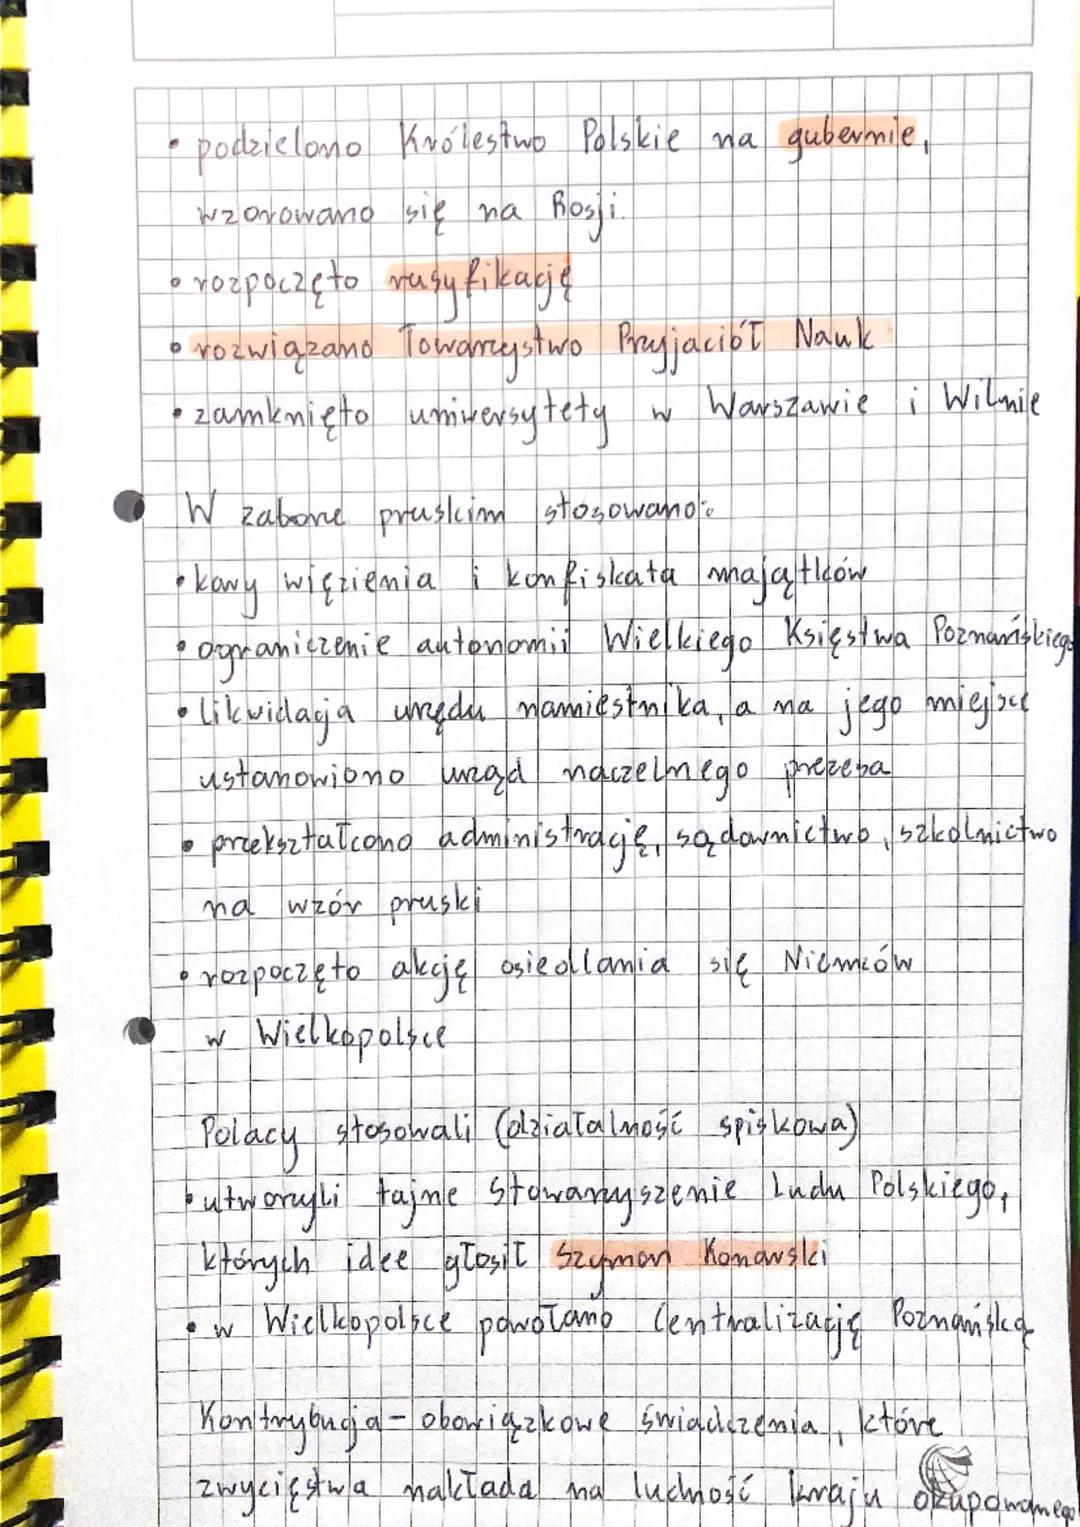 • podzielono Królestwo Polskie na gubernie,
wzorowano się na Rosji.
• rozpoczęto rusyfikację
• rozwiązano Towarzystwo Przyjaciół Nauk
• zamknięto uniwersytety w Warszawie i Wilnie
W zaborze pruskim stosowano:
• kary więzienia i konfiskata majątków
• ograniczenie autonomii Wielkiego Księstwa Poznańskiego
• likwidacja urzędu namiestnika, a na jego miejsce
ustanowiono urząd naczelnego prezesa
• przekształcono administrację, sądownictwo, szkolnictwo
na wzór pruski
• rozpoczęto akcję osiedlania się Niemców
w Wielkopolsce
Polacy stosowali (działalność spiskowa)
• utworzyli tajne Stowarzyszenie Ludu Polskiego,
których idee głosił Szymon Konarski
• w Wielkopolsce powołano Centralizację Poznańską
Kontrybucja - obowiązkowe świadczenia, które
zwycięstwa nakłada na ludność kraju okupowanego